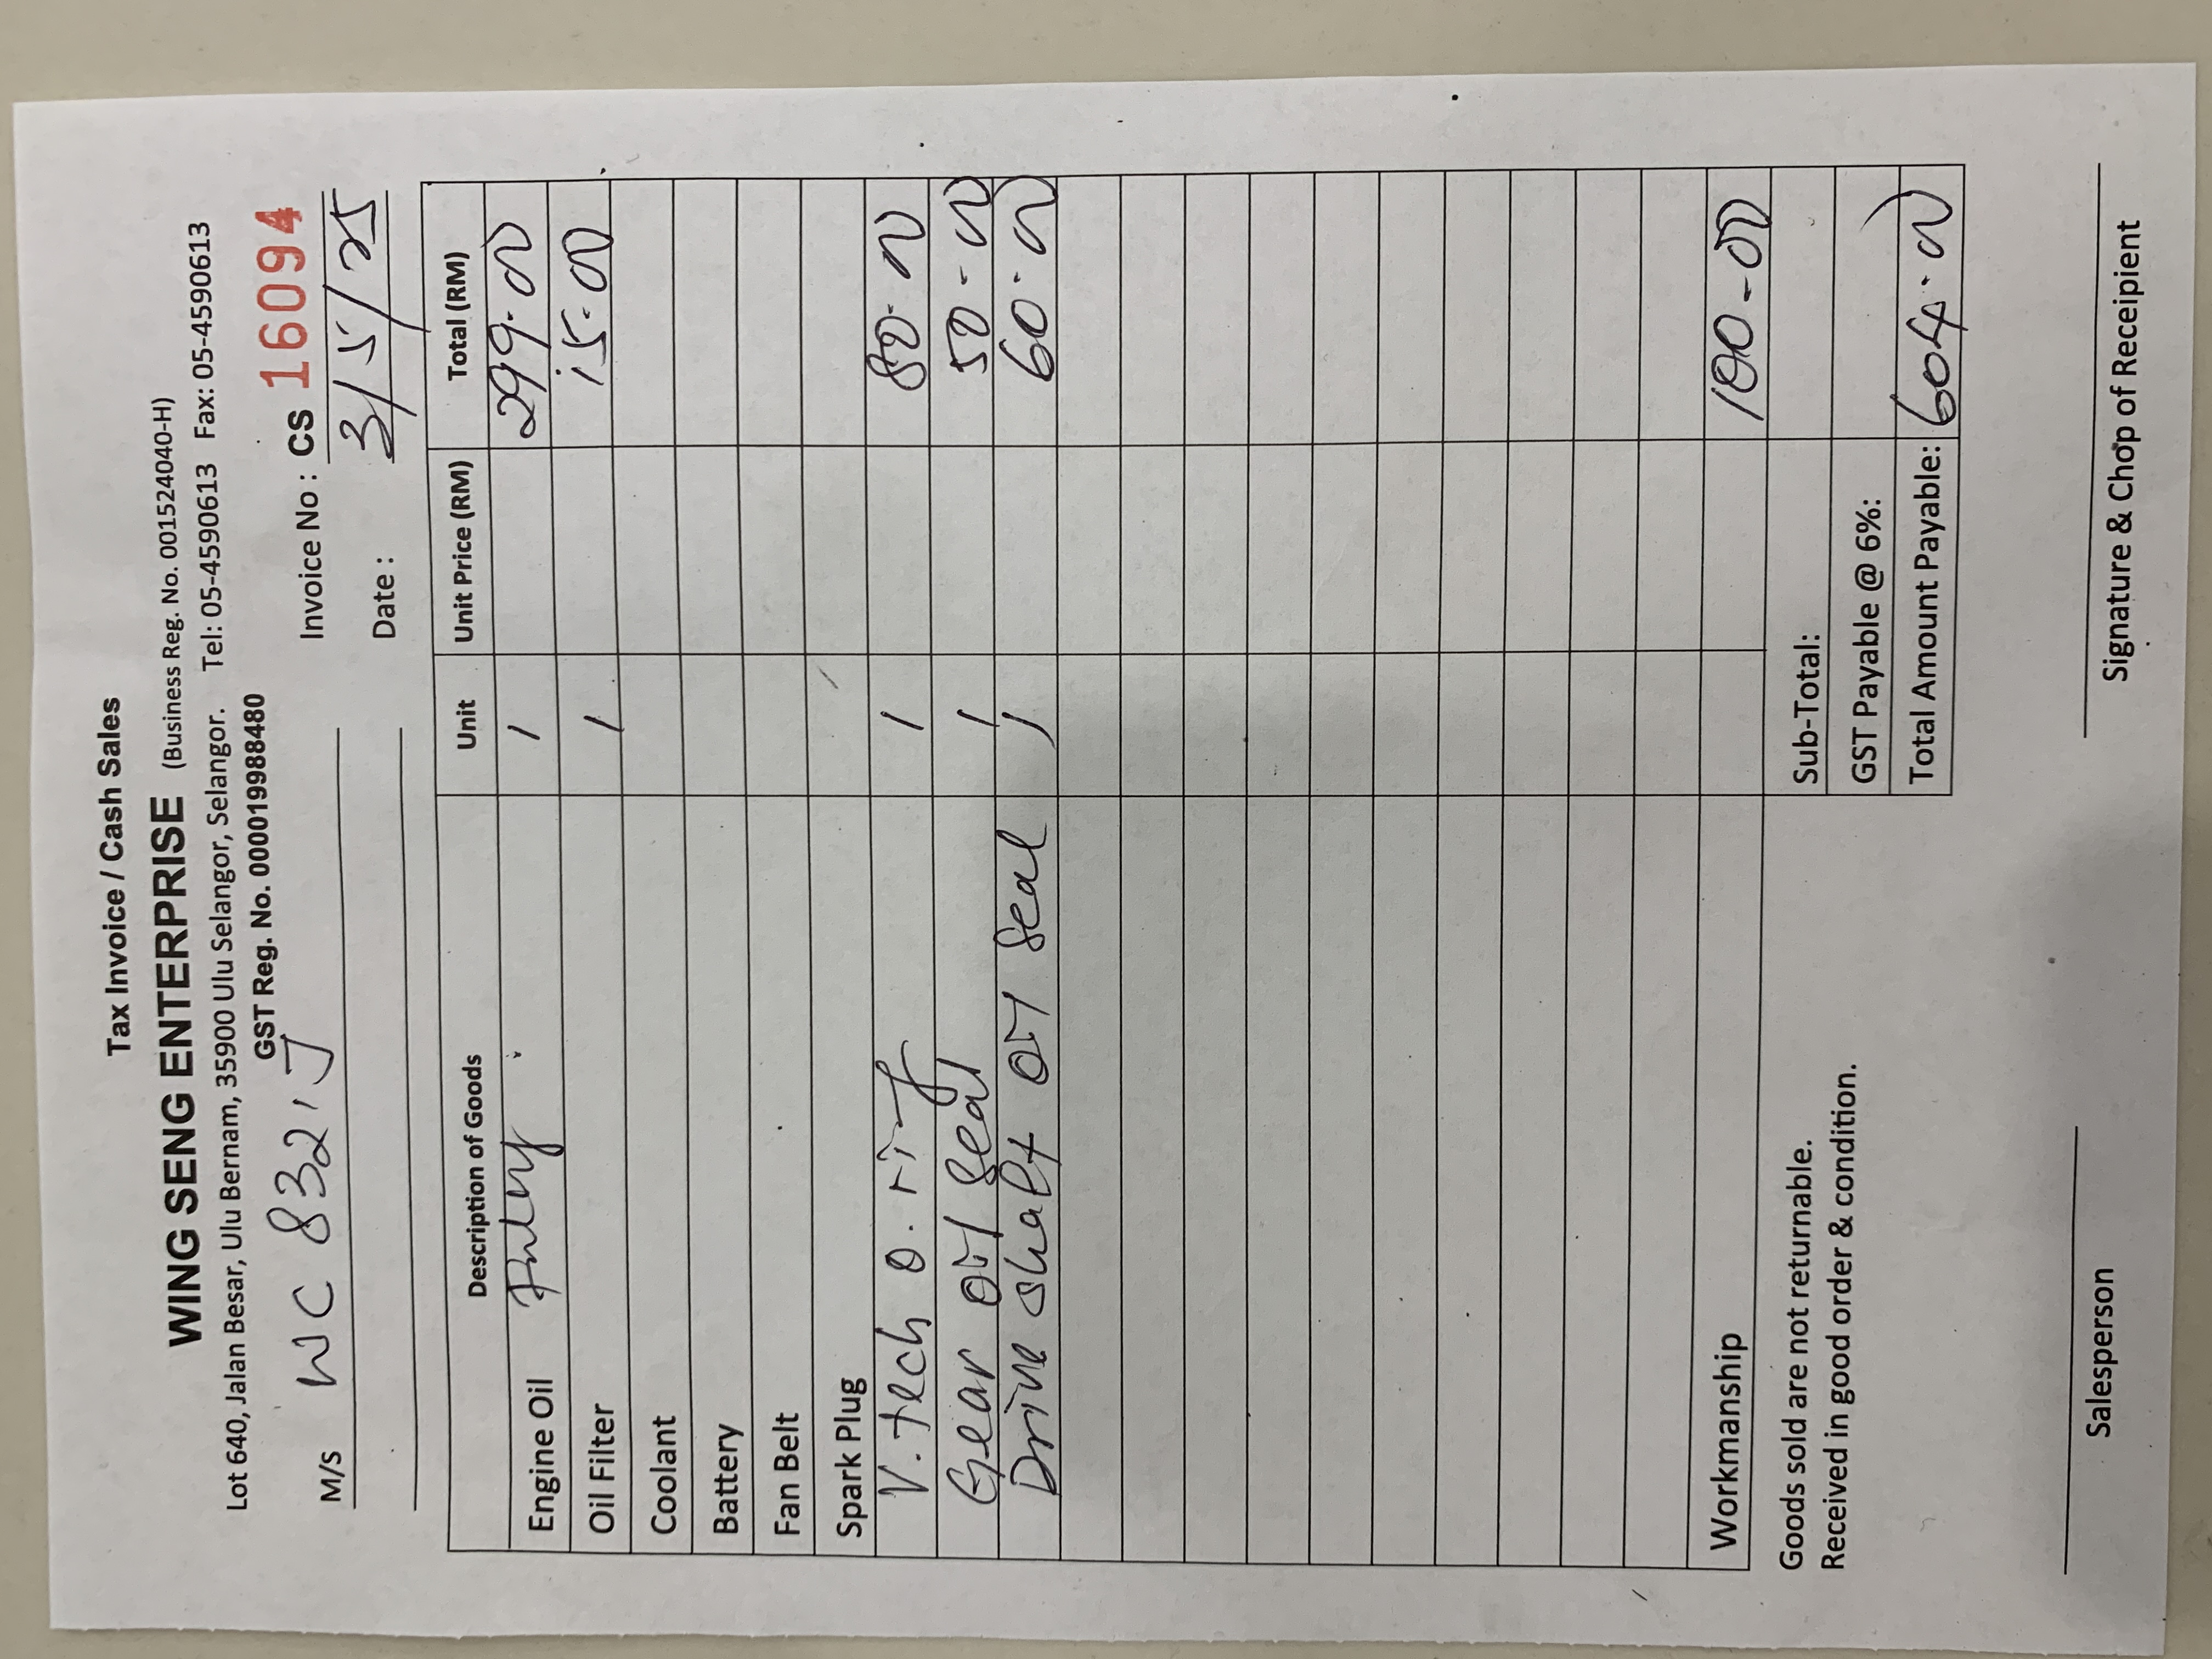 Tax Invoice / Cash Sales
WING SENG ENTERPRISE (Business Reg. No. 001524040-H)
Lot 640, Jalan Besar, Ulu Bernam, 35900 Ulu Selangor, Selangor. Tel: 05-4590613 Fax: 05-4590613
GST Reg. No. 000019988480
M/S WC 8321J
Invoice No : CS 16094
Date : 3/5/25
Description of Goods Unit Unit Price (RM) Total (RM)
Engine Oil 1 299.00
Oil Filter 1 15.00
Coolant
Battery
Fan Belt
Spark Plug
V.tech O.ring 1 80.00
Gear oil seal 1 50-00
Drive shaft oil seal 1 60.00
Workmanship 100-00
Goods sold are not returnable.
Received in good order & condition.
Sub-Total:
GST Payable @ 6%:
Total Amount Payable: 604.00
Salesperson
Signature & Chop of Receipient